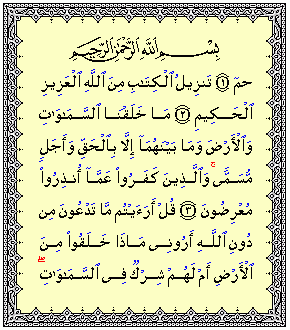 بِسْمِ ٱللَّهِ ٱلرَّحْمَٰنِ ٱلرَّحِيمِ
حمٓ ۝١ تَنزِيلُ ٱلْكِتَٰبِ مِنَ ٱللَّهِ ٱلْعَزِيزِ
ٱلْحَكِيمِ ۝٢ مَا خَلَقْنَا ٱلسَّمَٰوَٰتِ
وَٱلْأَرْضَ وَمَا بَيْنَهُمَآ إِلَّا بِٱلْحَقِّ وَأَجَلٍ
مُّسَمًّى ۚ وَٱلَّذِينَ كَفَرُوا۟ عَمَّآ أُنذِرُوا۟
مُعْرِضُونَ ۝٣ قُلْ أَرَءَيْتُم مَّا تَدْعُونَ مِن
دُونِ ٱللَّهِ أَرُونِى مَاذَا خَلَقُوا۟ مِنَ
ٱلْأَرْضِ أَمْ لَهُمْ شِرْكٌ فِى ٱلسَّمَٰوَٰتِ ۖ